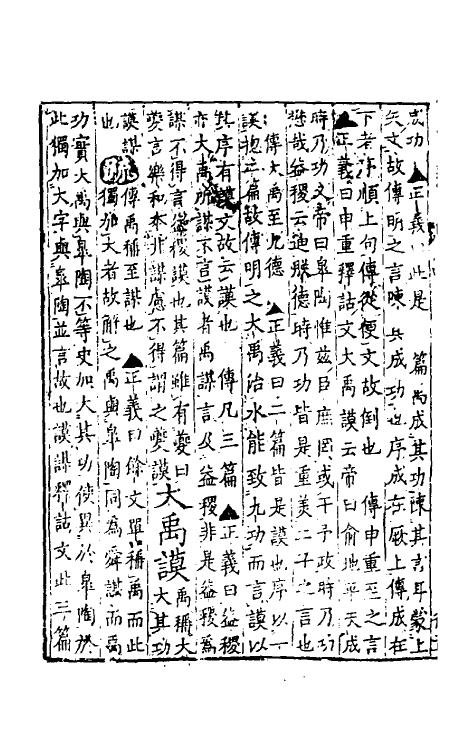 成功▲正義曰此是 篇禹成其功陳其言耳蒙上
矢文故傳明之言陳其成功也序成在厥上傳成在
下者序順上句傳從便文故倒也　傳申重至之言
▲正義曰申重釋詁文大禹謨云帝曰俞地平天成
時乃功又帝曰皋陶惟兹臣庶罔或干予政時乃功
懋哉益稷云迪朕德時乃功皆是重美二子之言也
傳大禹至九德　▲正義曰二篇皆是謨也序以一
謨總二篇故傳明之大禹治水能致九功而言謨以
其序有謨文故云謨也　傳凡三篇▲正義曰益稷
亦大禹所謀不言謨者禹謀言及益稷非是益稷爲
謀不得言益稷謨也其篇雖有夔曰
夔言樂和本非謀慮不得謂之夔謨
大禹謨
禹稱大
大其功
謨謀
也
疏
傳禹稱至謀也▲正義曰餘文單稱禹而此
獨加大者故解之禹與皋陶同爲舜謀而禹
功實大禹與皋陶不等史加大其功使異於皋陶於
此獨加大字與皋陶並言故也謨謀釋詁文此三篇